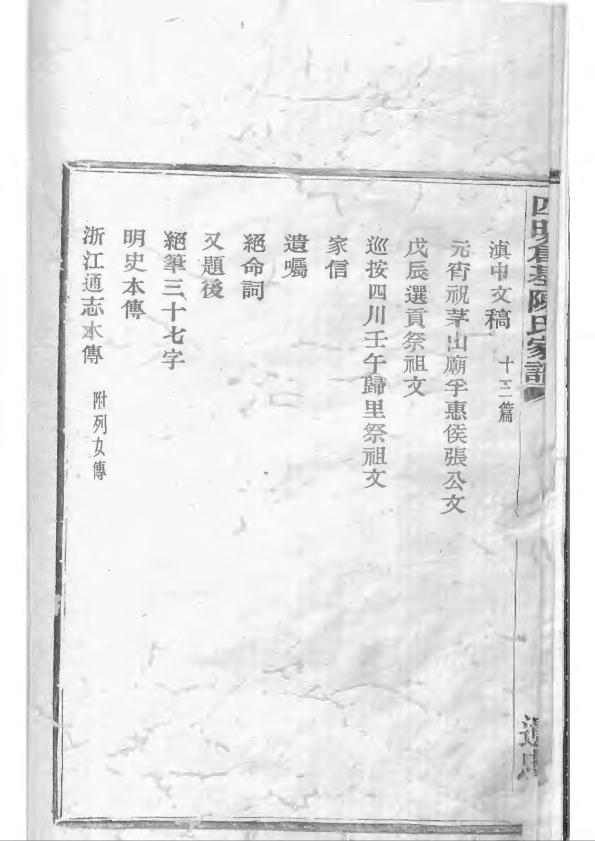 四明倉基陳氏家譜
滇中文稿 十三篇
元宵祝茅山廟孚惠侯張公文
戊辰選貢祭祖文
巡按四川壬午歸里祭祖文
家信
遺囑
絕命詞
又題後
絕筆三十七字
明史本傳
浙江通志本傳 附列女傳